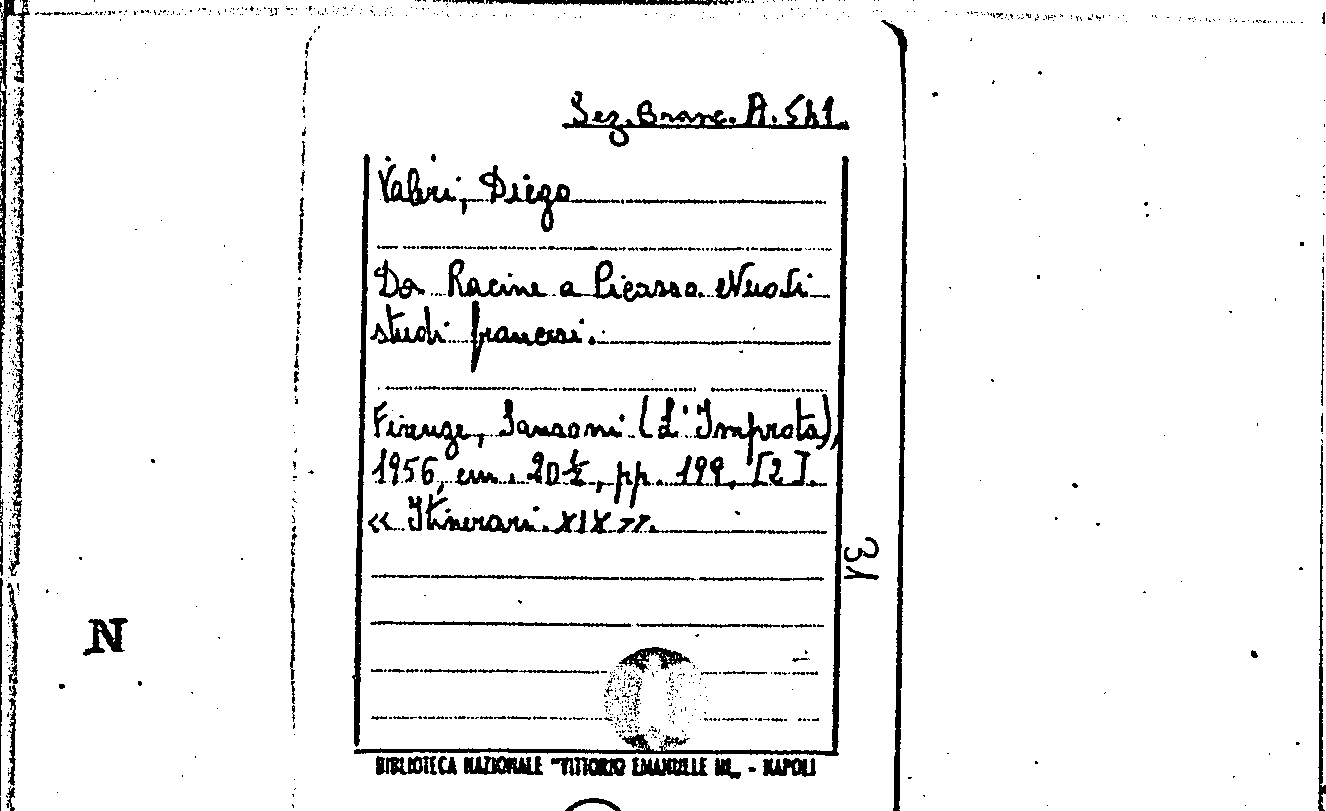 Sez. Branc. A. 541.
Valeri, Diego
Da Racine a Picasso. Nuovi
studi francesi.
Firenze, Sansoni (L'Impronta),
1956, cm. 20½, pp. 199, [2].
«Itinerari. XIX».
31
N
BIBLIOTECA NAZIONALE "VITTORIO EMANUELE III„ - NAPOLI